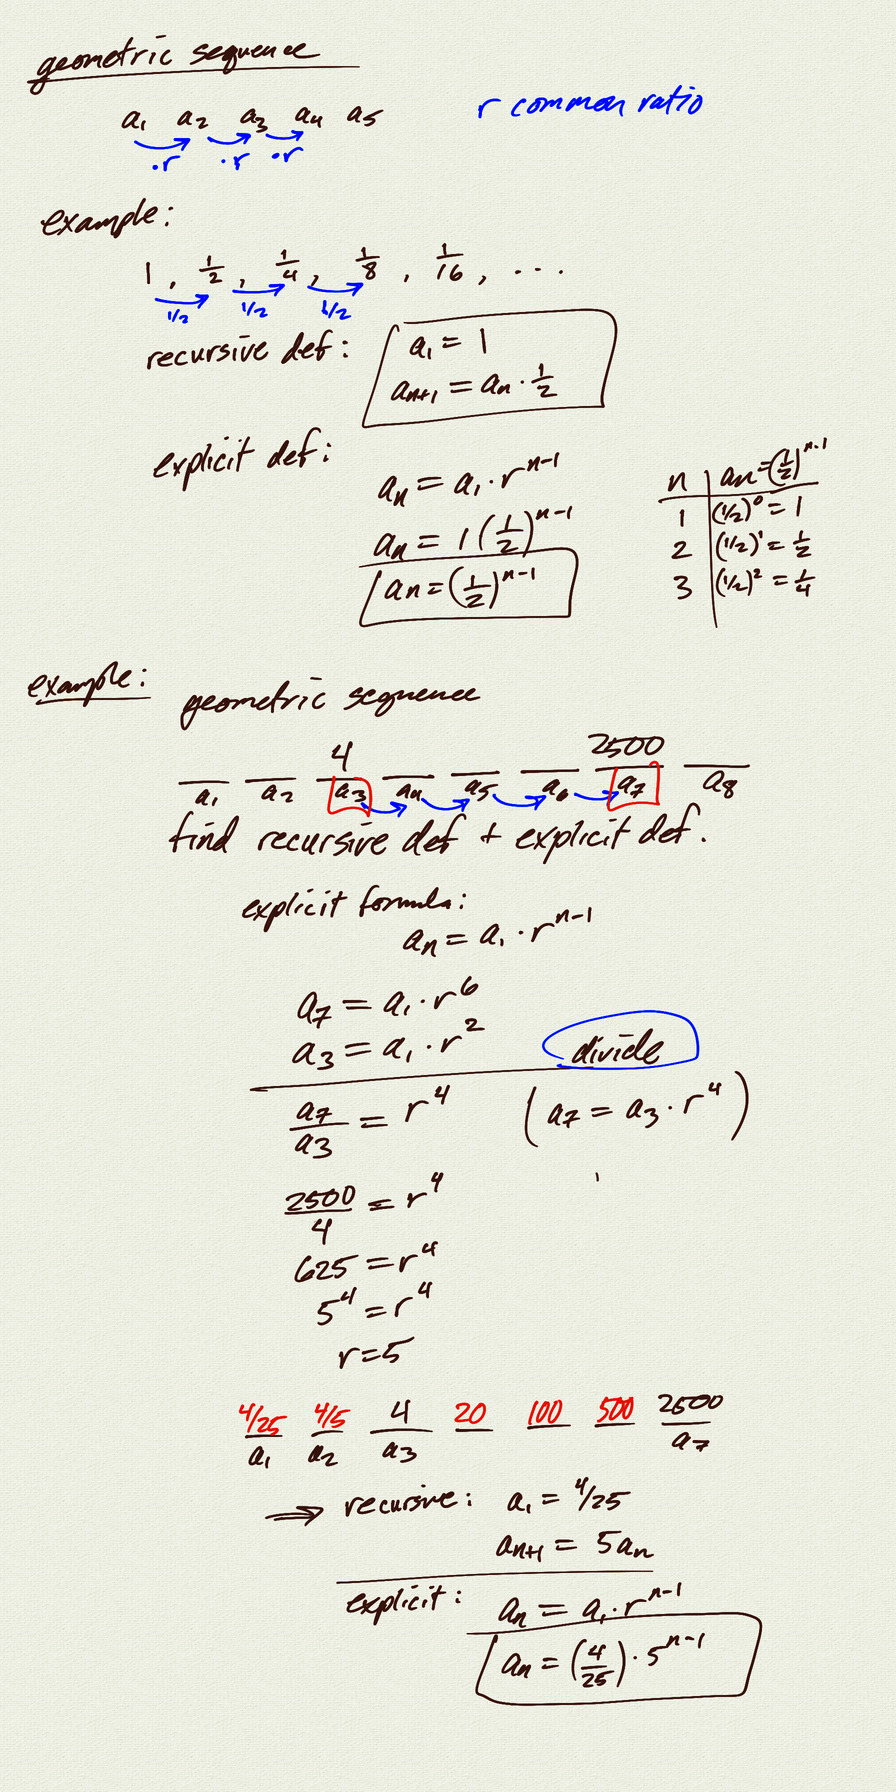 geometric sequence
a₁ a₂ a₃ a₄ a₅
r common ratio
·r ·r ·r
example:
1, 1/2, 1/4, 1/8, 1/16, ...
1/2 1/2 1/2
recursive def:
a₁ = 1
aₙ₊₁ = aₙ · 1/2
explicit def:
aₙ = a₁ · rⁿ⁻¹
aₙ = 1 (1/2)ⁿ⁻¹
aₙ = (1/2)ⁿ⁻¹
n | aₙ = (1/2)ⁿ⁻¹
1 | (1/2)⁰ = 1
2 | (1/2)¹ = 1/2
3 | (1/2)² = 1/4
example:
geometric sequence
4 2500
a₁ a₂ a₃ a₄ a₅ a₆ a₇ a₈
find recursive def + explicit def.
explicit formula:
aₙ = a₁ · rⁿ⁻¹
a₇ = a₁ · r⁶
a₃ = a₁ · r²
divide
a₇/a₃ = r⁴
(a₇ = a₃ · r⁴)
2500/4 = r⁴
625 = r⁴
5⁴ = r⁴
r = 5
4/25 4/5 4 20 100 500 2500
a₁ a₂ a₃ a₇
⇒ recursive: a₁ = 4/25
aₙ₊₁ = 5aₙ
explicit: aₙ = a₁ · rⁿ⁻¹
aₙ = (4/25) · 5ⁿ⁻¹